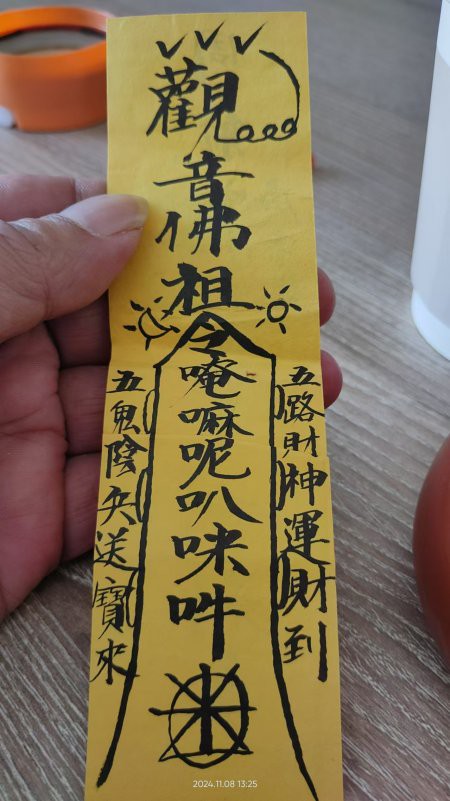 觀音佛祖令
唵嘛呢叭咪吽
五路財神運財到
五鬼陰兵送寶來
2024.11.08 13:25